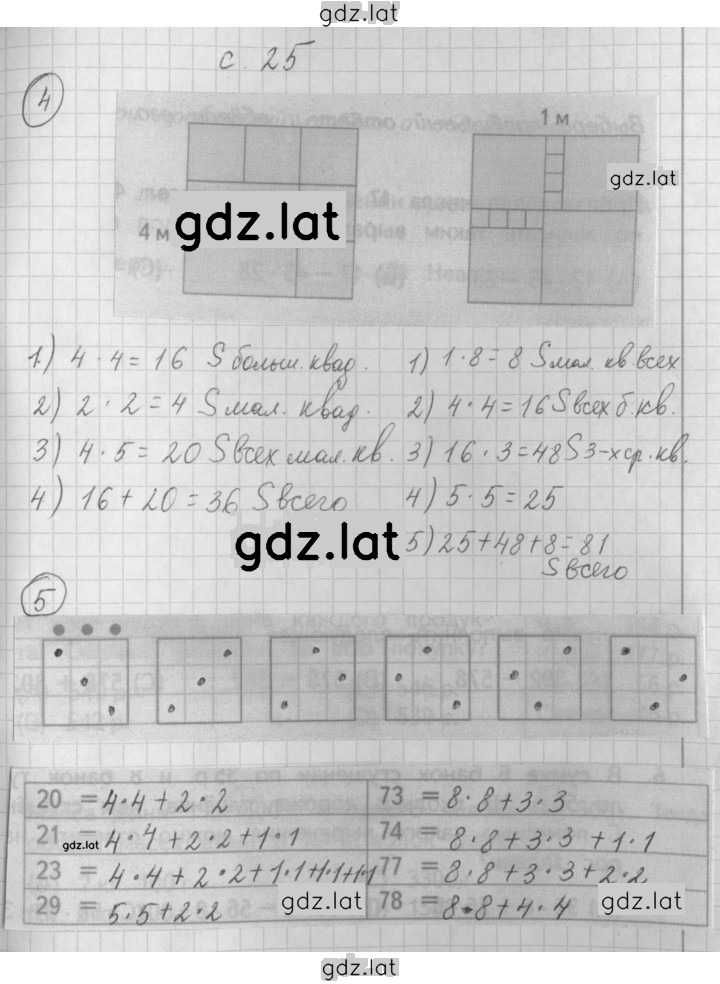 gdz.lat
с. 25
4
1 м
gdz.lat
gdz.lat
4 м
1) 4 · 4 = 16 S больш. квад.
2) 2 · 2 = 4 S мал. квад.
3) 4 · 5 = 20 S всех мал. кв.
4) 16 + 20 = 36 S всего
1) 1 · 8 = 8 S мал. кв. всех
2) 4 · 4 = 16 S всех б. кв.
3) 16 · 3 = 48 S 3-х ср. кв.
4) 5 · 5 = 25
5) 25 + 48 + 8 = 81
S всего
gdz.lat
5
20 = 4 · 4 + 2 · 2
21 = 4 · 4 + 2 · 2 + 1 · 1
23 = 4 · 4 + 2 · 2 + 1·1 + 1·1 + 1·1
29 = 5 · 5 + 2 · 2
73 = 8 · 8 + 3 · 3
74 = 8 · 8 + 3 · 3 + 1 · 1
77 = 8 · 8 + 3 · 3 + 2 · 2
78 = 8 · 8 + 4 · 4
gdz.lat
gdz.lat
gdz.lat
gdz.lat